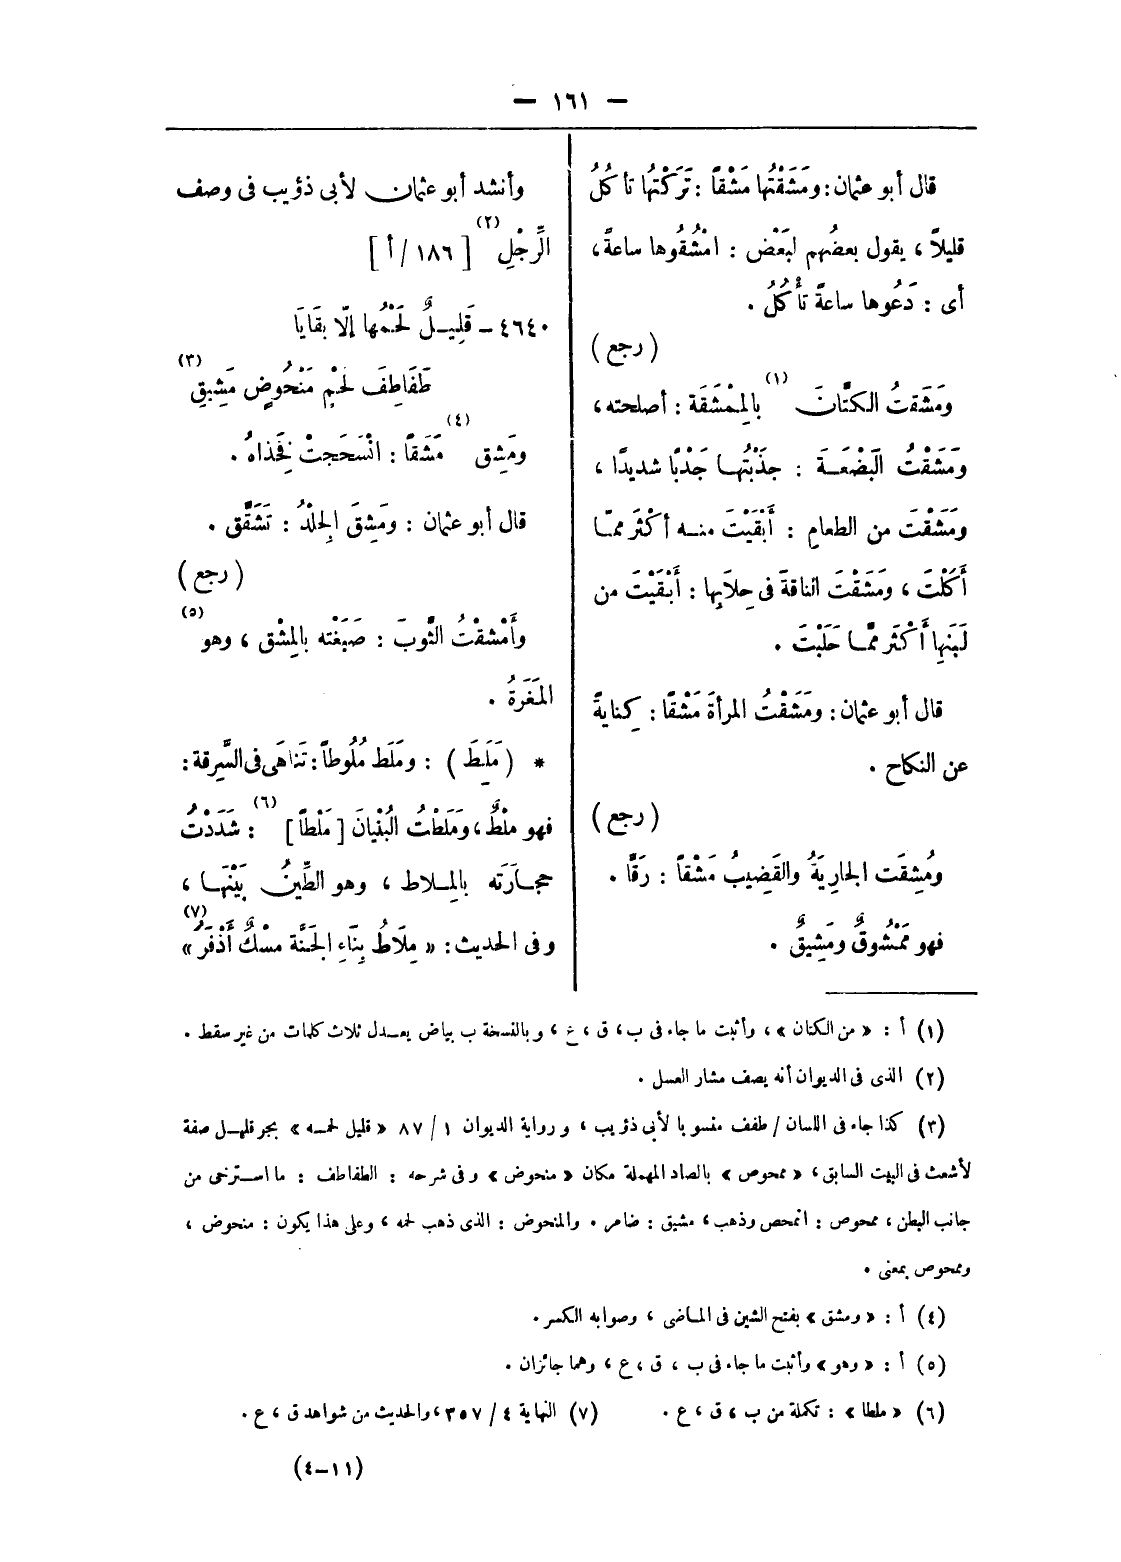 — ١٦١ —
قال أبو عثمان : ومَشَقْتُها مَشْقاً : تَرَكْتُها تأكُلُ
قليلاً ، يقول بعضُهم لبَعْض : امْشُقُوها ساعةً ،
أى : دَعُوها ساعةً تأْكُلُ .
( رجع )
ومَشَقتُ الكتَّانَ (١) بالمِمْشَقَة : أصلحته ،
ومَشَقْتُ البَضْعَةَ : جذَبْتُها جَذْبًا شديدًا ،
ومَشَقْتَ من الطعامِ : أَبْقَيْتَ منه أكْثَر ممّا
أَكَلْتَ ، ومَشَقْتَ الناقةَ فى حِلابِها : أَبْقَيْتَ من
لَبَنِها أَكْثَر ممَّا حَلَبْتَ .
قال أبو عثمان : ومَشَقْتُ المرأةَ مَشْقًا : كِنايةً
عن النكاح .
( رجع )
ومُشِقَت الجارِيَةُ والقَضِيبُ مَشْقاً : رَقَّا .
فهو مَمْشُوقٌ ومَشِيقٌ .
وأنشد أبو عثمان لأبى ذؤيب فى وصف
الرَّجْلِ (٢) [ ١٨٦ / أ ]
٤٦٤٠ – قَلِيلٌ لَحْمُها إلّا بقَايَا
طَفَاطِفَ لَحْمٍ مَنْحُوضٍ مَشِيقِ (٣)
ومَشِق (٤) مَشَقًا : انْسَحَجتْ فَخذاهُ .
قال أبو عثمان : ومَشِقَ الجِلْدُ : تَشَقَّق .
( رجع )
وأَمْشقْتُ الثَّوبَ : صَبَغْته بالمِشْق ، وهو (٥)
المَغَرَةُ .
* ( مَلَطَ ) : ومَلَط مُلُوطاً : تَناهَى فى السَّرِقة :
فهو ملْطٌ ، ومَلَطْتُ البُنْيانَ [ مَلْطاً ] (٦) : شَدَدْتُ
حجارَته بالمِلاط ، وهو الطِّينُ بَيْنَها ،
وفى الحديث : « مِلَاطُ بِنَاءِ الجَنَّة مسْكٌ أَذْفَرُ » (٧)
(١) أ : « من الكتان » ، وأثبت ما جاء فى ب ، ق ، ع ، وبالنسخة ب بياض يعدل ثلاث كلمات من غير سقط .
(٢) الذى فى الديوان أنه يصف مشار العسل .
(٣) كذا جاء فى اللسان / طفف منسوبا لأبى ذؤيب ، ورواية الديوان ١ / ٨٧ « قليل لحمه » بجر قليل صفة
لأشعث فى البيت السابق ، « ممحوص » بالصاد المهملة مكان « منحوض » وفى شرحه : الطفاطف : ما استرخى من
جانب البطن ، ممحوص : انمحص وذهب ، مشيق : ضامر . والمنحوض : الذى ذهب لحمه ، وعلى هذا يكون : منحوض ،
وممحوص بمعنى .
(٤) أ : « ومشق » بفتح الشين فى الماضى ، وصوابه الكسر .
(٥) أ : « وهو » وأثبت ما جاء فى ب ، ق ، ع ، وهما جائزان .
(٦) « ملطا » : تكملة من ب ، ق ، ع . (٧) النهاية ٤ / ٣٥٧ ، والحديث من شواهد ق ، ع .
(١١–٤)